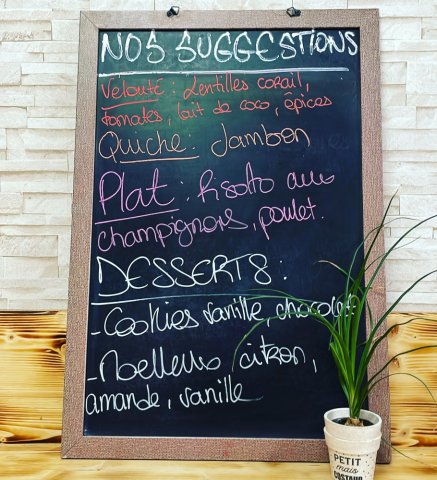 NOS SUGGESTIONS
Velouté : Lentilles corail,
tomates, lait de coco, épices
Quiche : Jambon
Plat : Risoto aux
champignons, poulet.
DESSERTS :
-Cookies vanille, chocolat
-Moelleux citron,
amande, vanille
PETIT
mais
COSTAUD